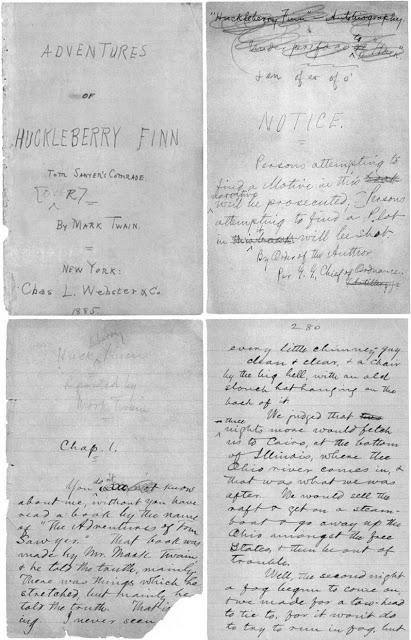 ADVENTURES
OF
HUCKLEBERRY FINN
TOM SAWYER'S COMRADE.
By MARK TWAIN.
NEW YORK:
Chas L. Webster & Co.
1885.
"Huckleberry Finn" - Autobiography
NOTICE.
Persons attempting to
find a Motive in this
narrative
will be prosecuted; Persons
attempting to find a Plot
in will be shot
By Order of the Author
Per G. G., Chief of Ordnance.
Huckleberry Finn
Reported by
Mark Twain
Chap. 1.
You do know
about me, without you have
read a book by the name
of "The Adventures of Tom
Sawyer." That book was
made by Mr. Mark Twain,
& he told the truth, mainly.
There was things which he
stretched, but mainly he
told the truth. That is
I never seen
280
every little chimney
clean & clear, & a chair
by the big bell, with an old
slouch hat hanging on the
back of it
We judged that
three
nights more would fetch
us to Cairo, at the bottom
of Illinois, where the
Ohio river comes in, &
that was what we was
after. We would sell the
raft & get on a steam-
boat & go away up the
Ohio amongst the free
States, & then be out of
trouble.
Well, the second night
a fog begun to come on,
& we made for a tow-head
to tie to, for it won't do
to try to run in fog, but